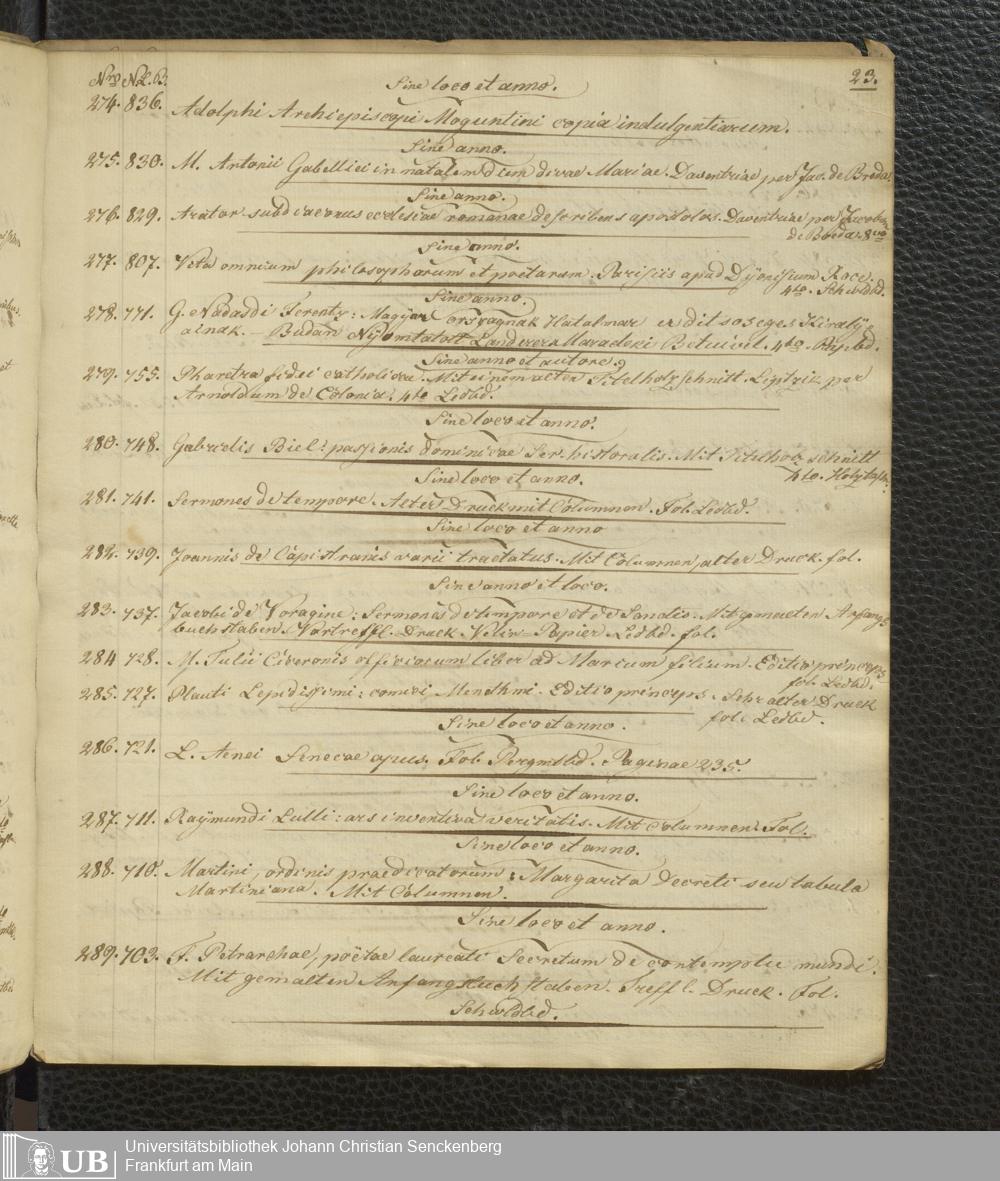 23.
Nro N.L.B. Sine loco et anno.
274. 836. Adolphi Archiepiscopi Moguntini copia indulgentiarum.
Sine anno.
275. 830. M. Antonii Gabellici in natalem diem divae Mariae. Daventriae per Jac. de Breda.
Sine anno.
276. 829. Arator subdiaconus ecclesiae romanae describens apostolos. Daventriae per Jacobum
de Breda. 8vo
Sine anno.
277. 807. Vita omnium philosophorum et poetarum. Parisiis apud Dijonisium Roce.
4to. Schwldbd.
Sine anno.
278. 771. G. Nadasdi Ferentz: Magyar orszagnak Hatalmar er dit soseges Kiralÿ
ainak. – Budan Nÿomtatott Landerer Betuivel. 4to. Ppbd.
Sine anno et autore.
279. 755. Pharetra fidei catholicae. Mit einem alten Titelholzschnitt. Liptzik per
Arnoldum de Colonia. 4to Ledbd.
Sine loco et anno.
280. 748. Gabrielis Biel: passionis dominicae Ser. historalis. Mit Titelholzschnitt
4to. Holztafln.
Sine loco et anno.
281. 741. Sermones de tempore. Alter Druck mit Columnen. Fol. Ledbd.
Sine loco et anno
282. 739. Joannis de Capistranis varii tractatus. Mit Columnen, alter Druck. fol.
Sine anno et loco.
283. 737. Jacobi de Voragine: Sermones de tempore et de Sanctis. Mit gemaelten Anfangs
buchstaben. Vortreffl. Druck. Velin-Papier. Ledbd. fol.
284 728. M. Tulii Ciceronis officiorum liber ad Marcum filium. Editio princeps
fol. Ledbd.
285. 727. Plauti Lepidissimi: comici Menethmi. Editio princeps. Sehr alter Druck
fol. Ledbd.
Sine loco et anno.
286. 721. L. Aenei Senecae opus. Fol. Pergmtbd. Paginae 235.
Sine loco et anno.
287. 711. Raÿmundi Lulli: ars inventiva veritatis. Mit Columnen. Fol.
Sine loco et anno.
288. 710. Martini, ordinis praedicatorum: Margarita Decreti seu tabula
Martiniana. Mit Columnen.
Sine loco et anno.
289. 703. F. Petrarchae, poëtae laureati Secretum de contemptu mundi.
Mit gemalten Anfangsbuchstaben. Treffl. Druck. Fol.
Schwldbd.
UB
Universitätsbibliothek Johann Christian Senckenberg
Frankfurt am Main